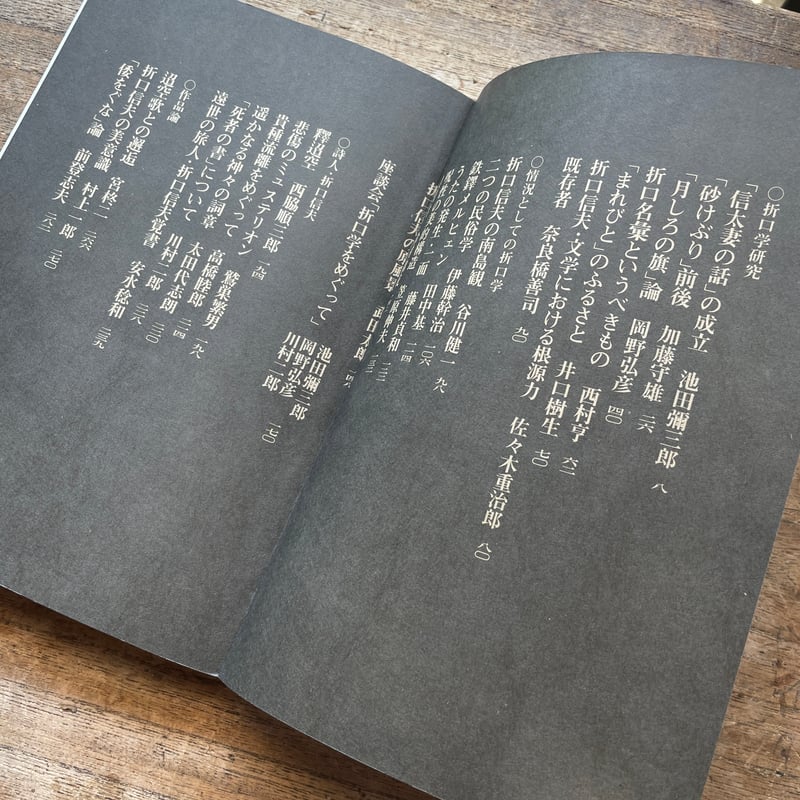 ○折口学研究
「信太妻の話」の成立 池田彌三郎 八
「砂けぶり」前後 加藤守雄 二六
「月しろの旗」論 岡野弘彦 四〇
折口名彙というべきもの 西村亨 六二
「まれびと」のふるさと 井口樹生 七〇
折口信夫・文学における根源力 佐々木重治郎 八〇
既存者 奈良橋善司 九〇
○情況としての折口学
折口信夫の南島観 谷川健一 九八
二つの民俗学 伊藤幹治 一〇六
鉄鐸メルヒェン 田中基
うたの発生一面 藤井貞和
座談会「折口学をめぐって」 池田彌三郎 岡野弘彦 川村二郎 一七〇
○詩人・折口信夫
釋迢空 西脇順三郎 一九四
悲傷のミュステリオン 鷲巣繁男 一九八
貴種流離をめぐって 高橋睦郎
遥かなる神々の詞章 太田代志朗
「死者の書」について 川村二郎 二三〇
遠世の旅人・折口信夫覚書 安水稔和 二三九
○作品論
迢空歌との邂逅 宮柊二 二六六
折口信夫の美意識 村上一郎 二七〇
「倭をぐな」論 前登志夫 二八二